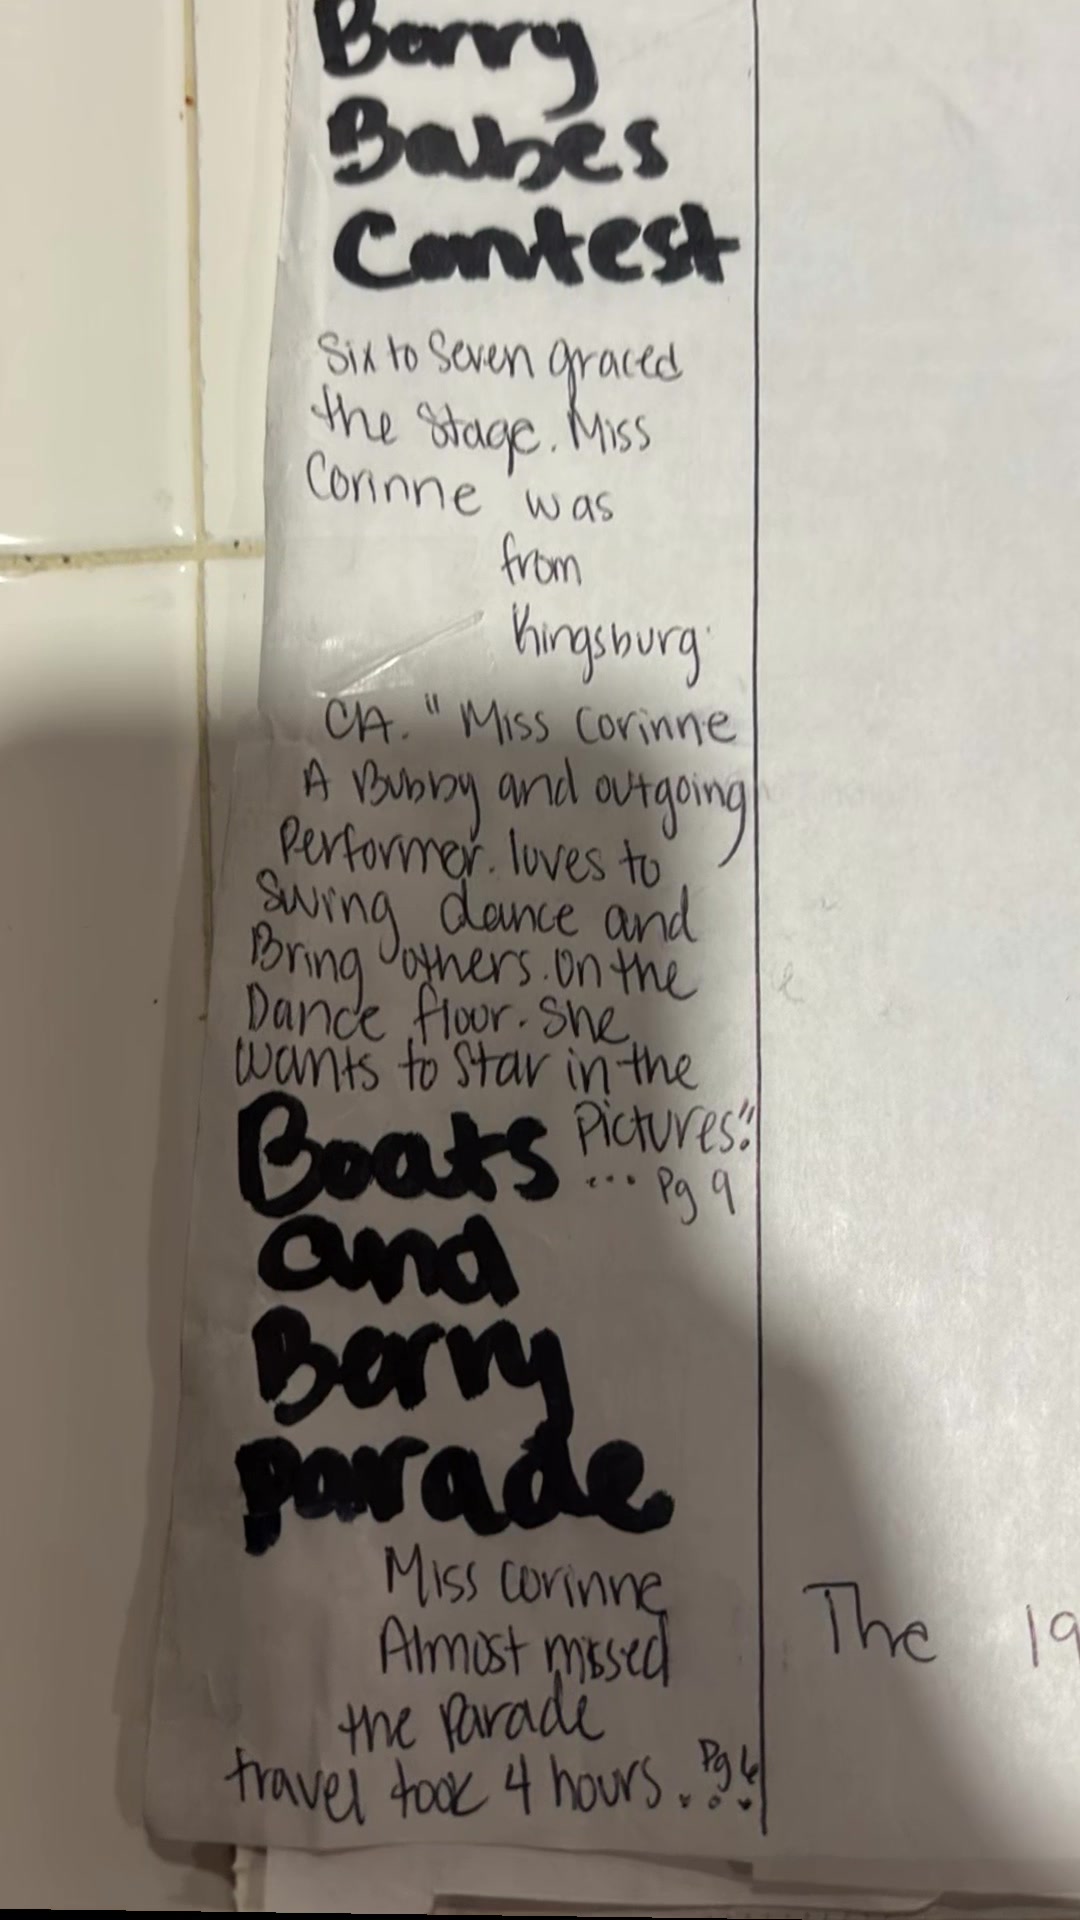 Barry
Babes
Contest
Six to Seven graced
the Stage. Miss
Corinne was
from
Kingsburg
CA. "Miss Corinne
A Bubby and outgoing
Performer. loves to
Swing dance and
Bring others on the
Dance floor. She
wants to star in the
Pictures."
... Pg 9
Boats
and
Barry
parade
Miss corinne
Almost missed
the Parade
travel took 4 hours... Pg 6
The 19